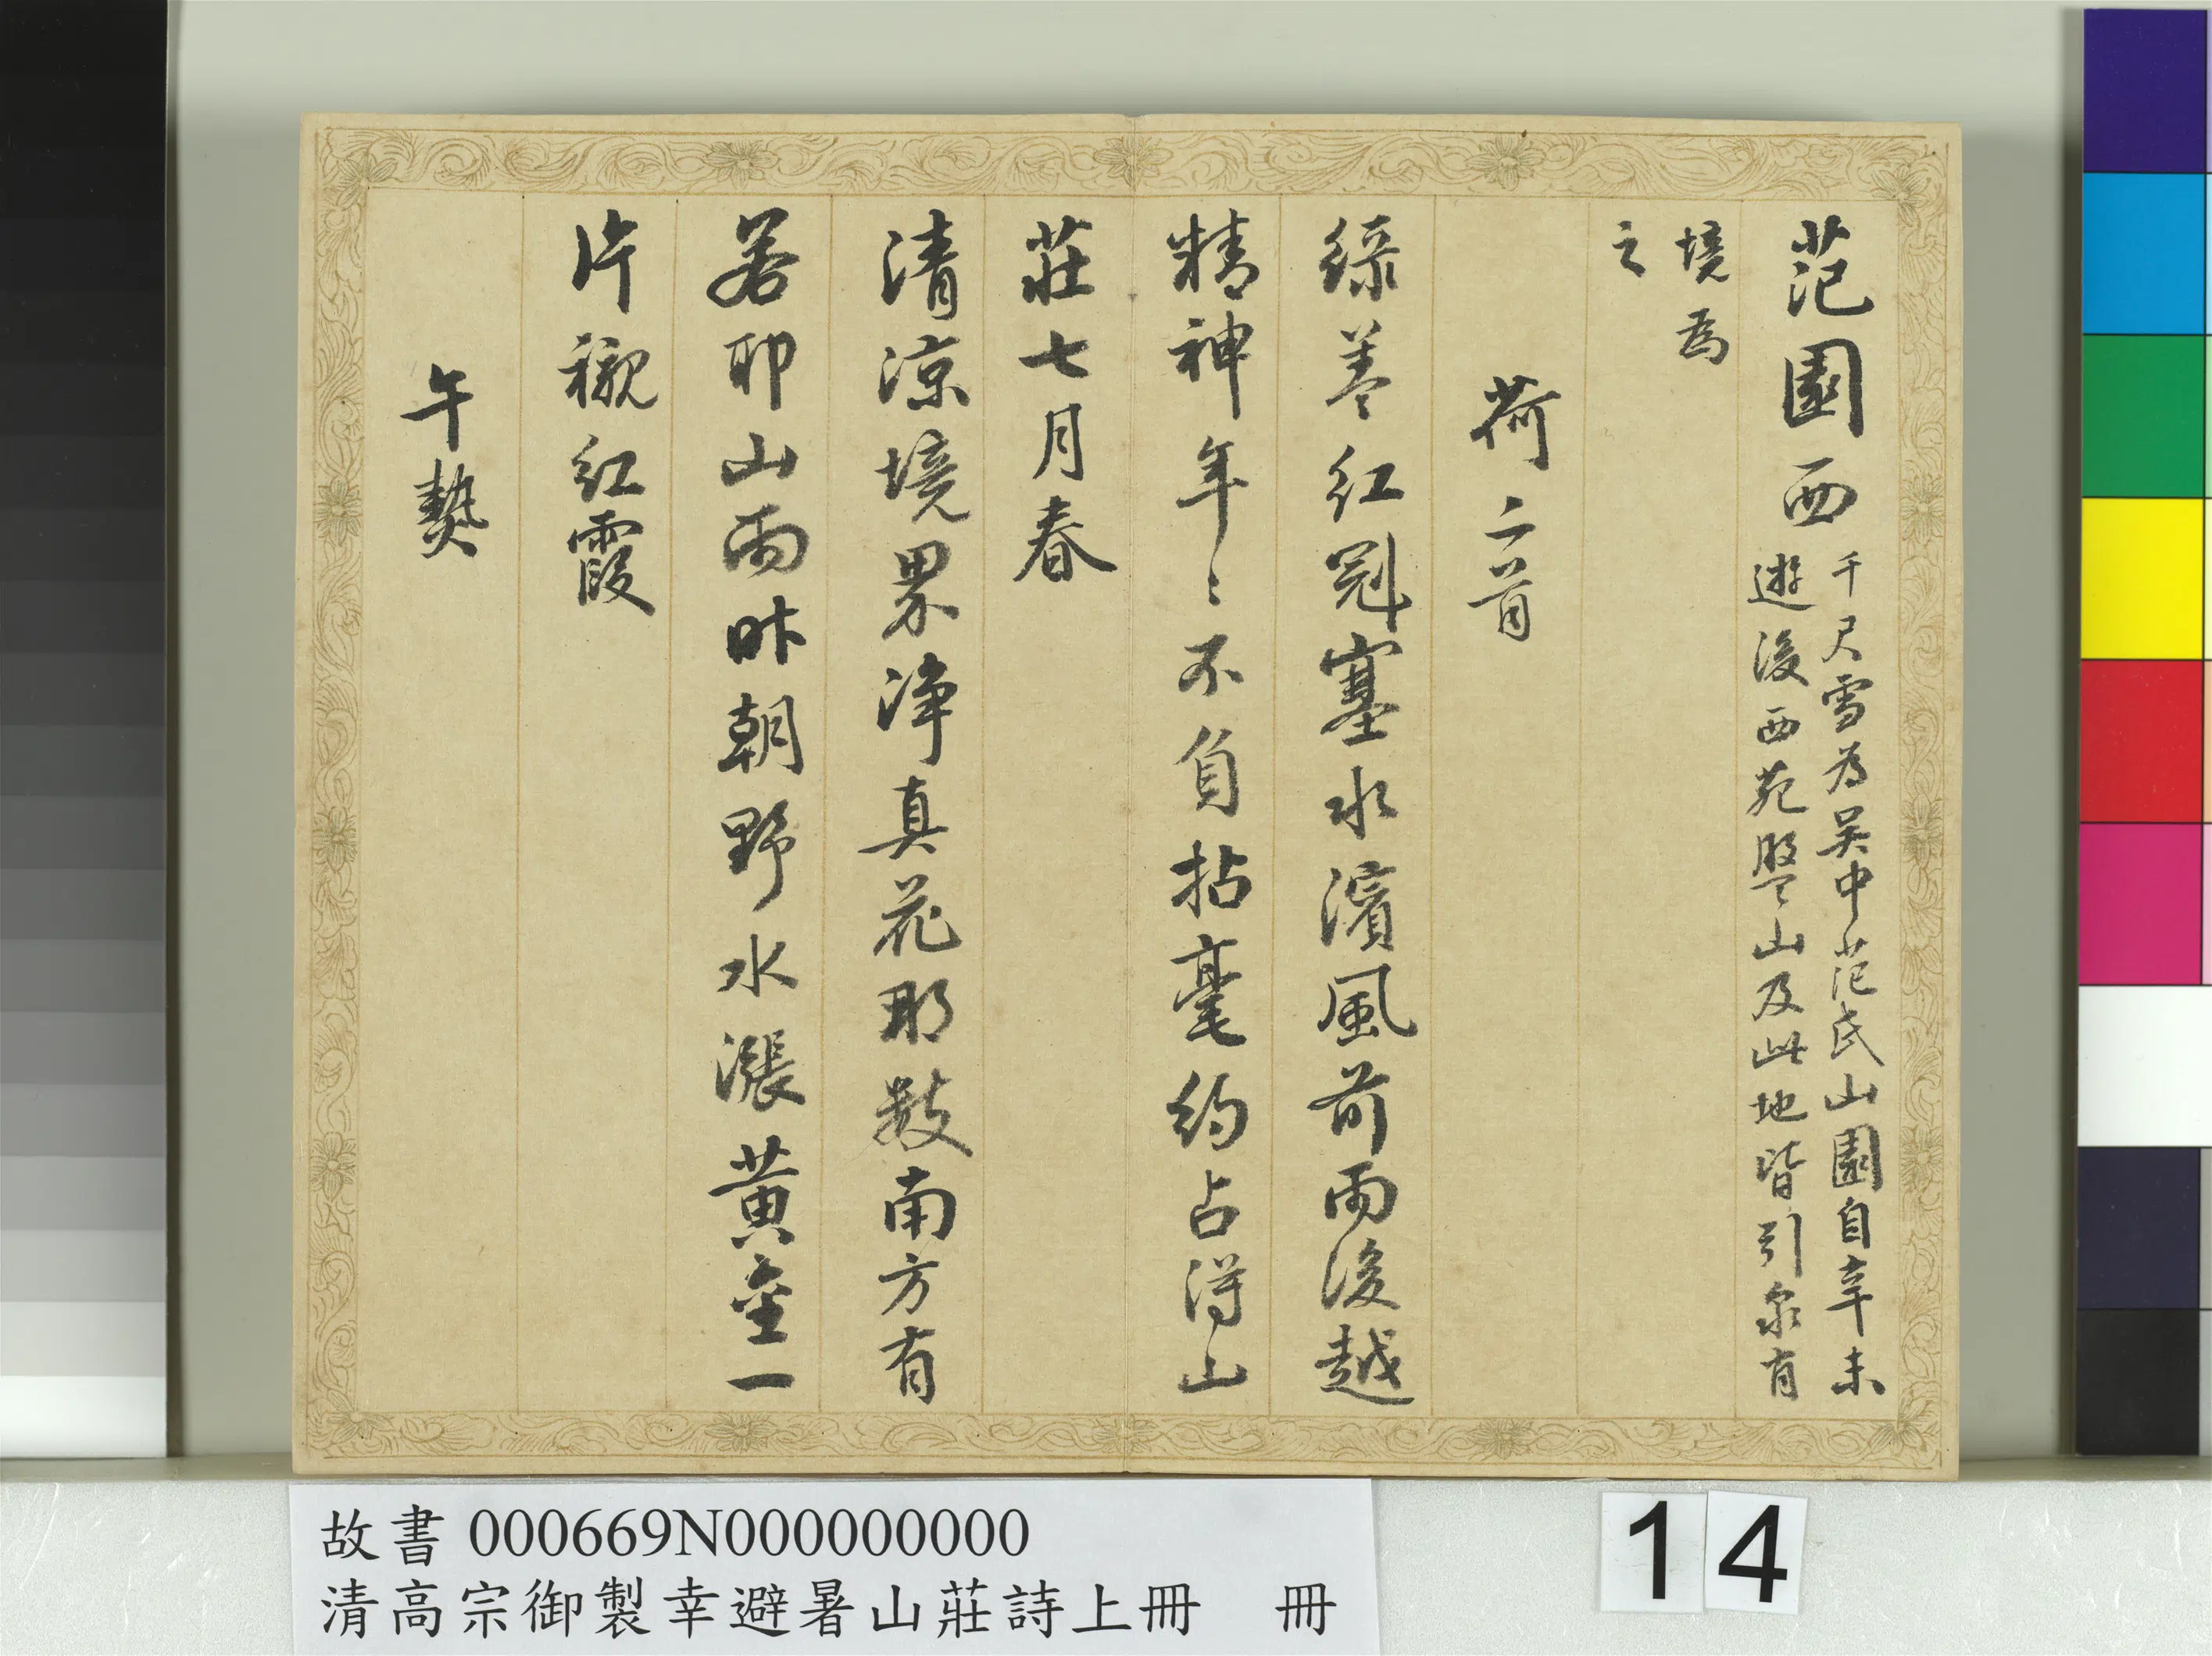 范園西
千尺雪為吳中范氏山園自辛未
遊後西苑盤山及此地皆引泉肖
境為
之
荷二首
綠蓋紅冠塞水濱風前雨後越
精神年〻不負拈毫約占得山
莊七月春
清涼境界淨真花那數南方有
若耶山雨昨朝野水漲黃金一
片襯紅霞
午熱
故書 000669N000000000
清高宗御製幸避暑山莊詩上冊 冊
14